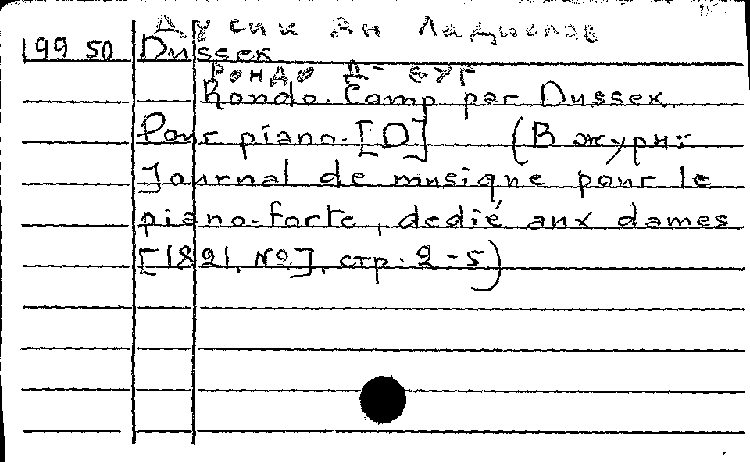 Дусик Ян Ладислав
199 50 Dussek
Рондо Д-
Rondo. Comp par Dussek.
Pour piano. [D] (В журн:
Journal de musique pour le
piano-forte, dedié aux dames
[1821, №], стр. 2-5)